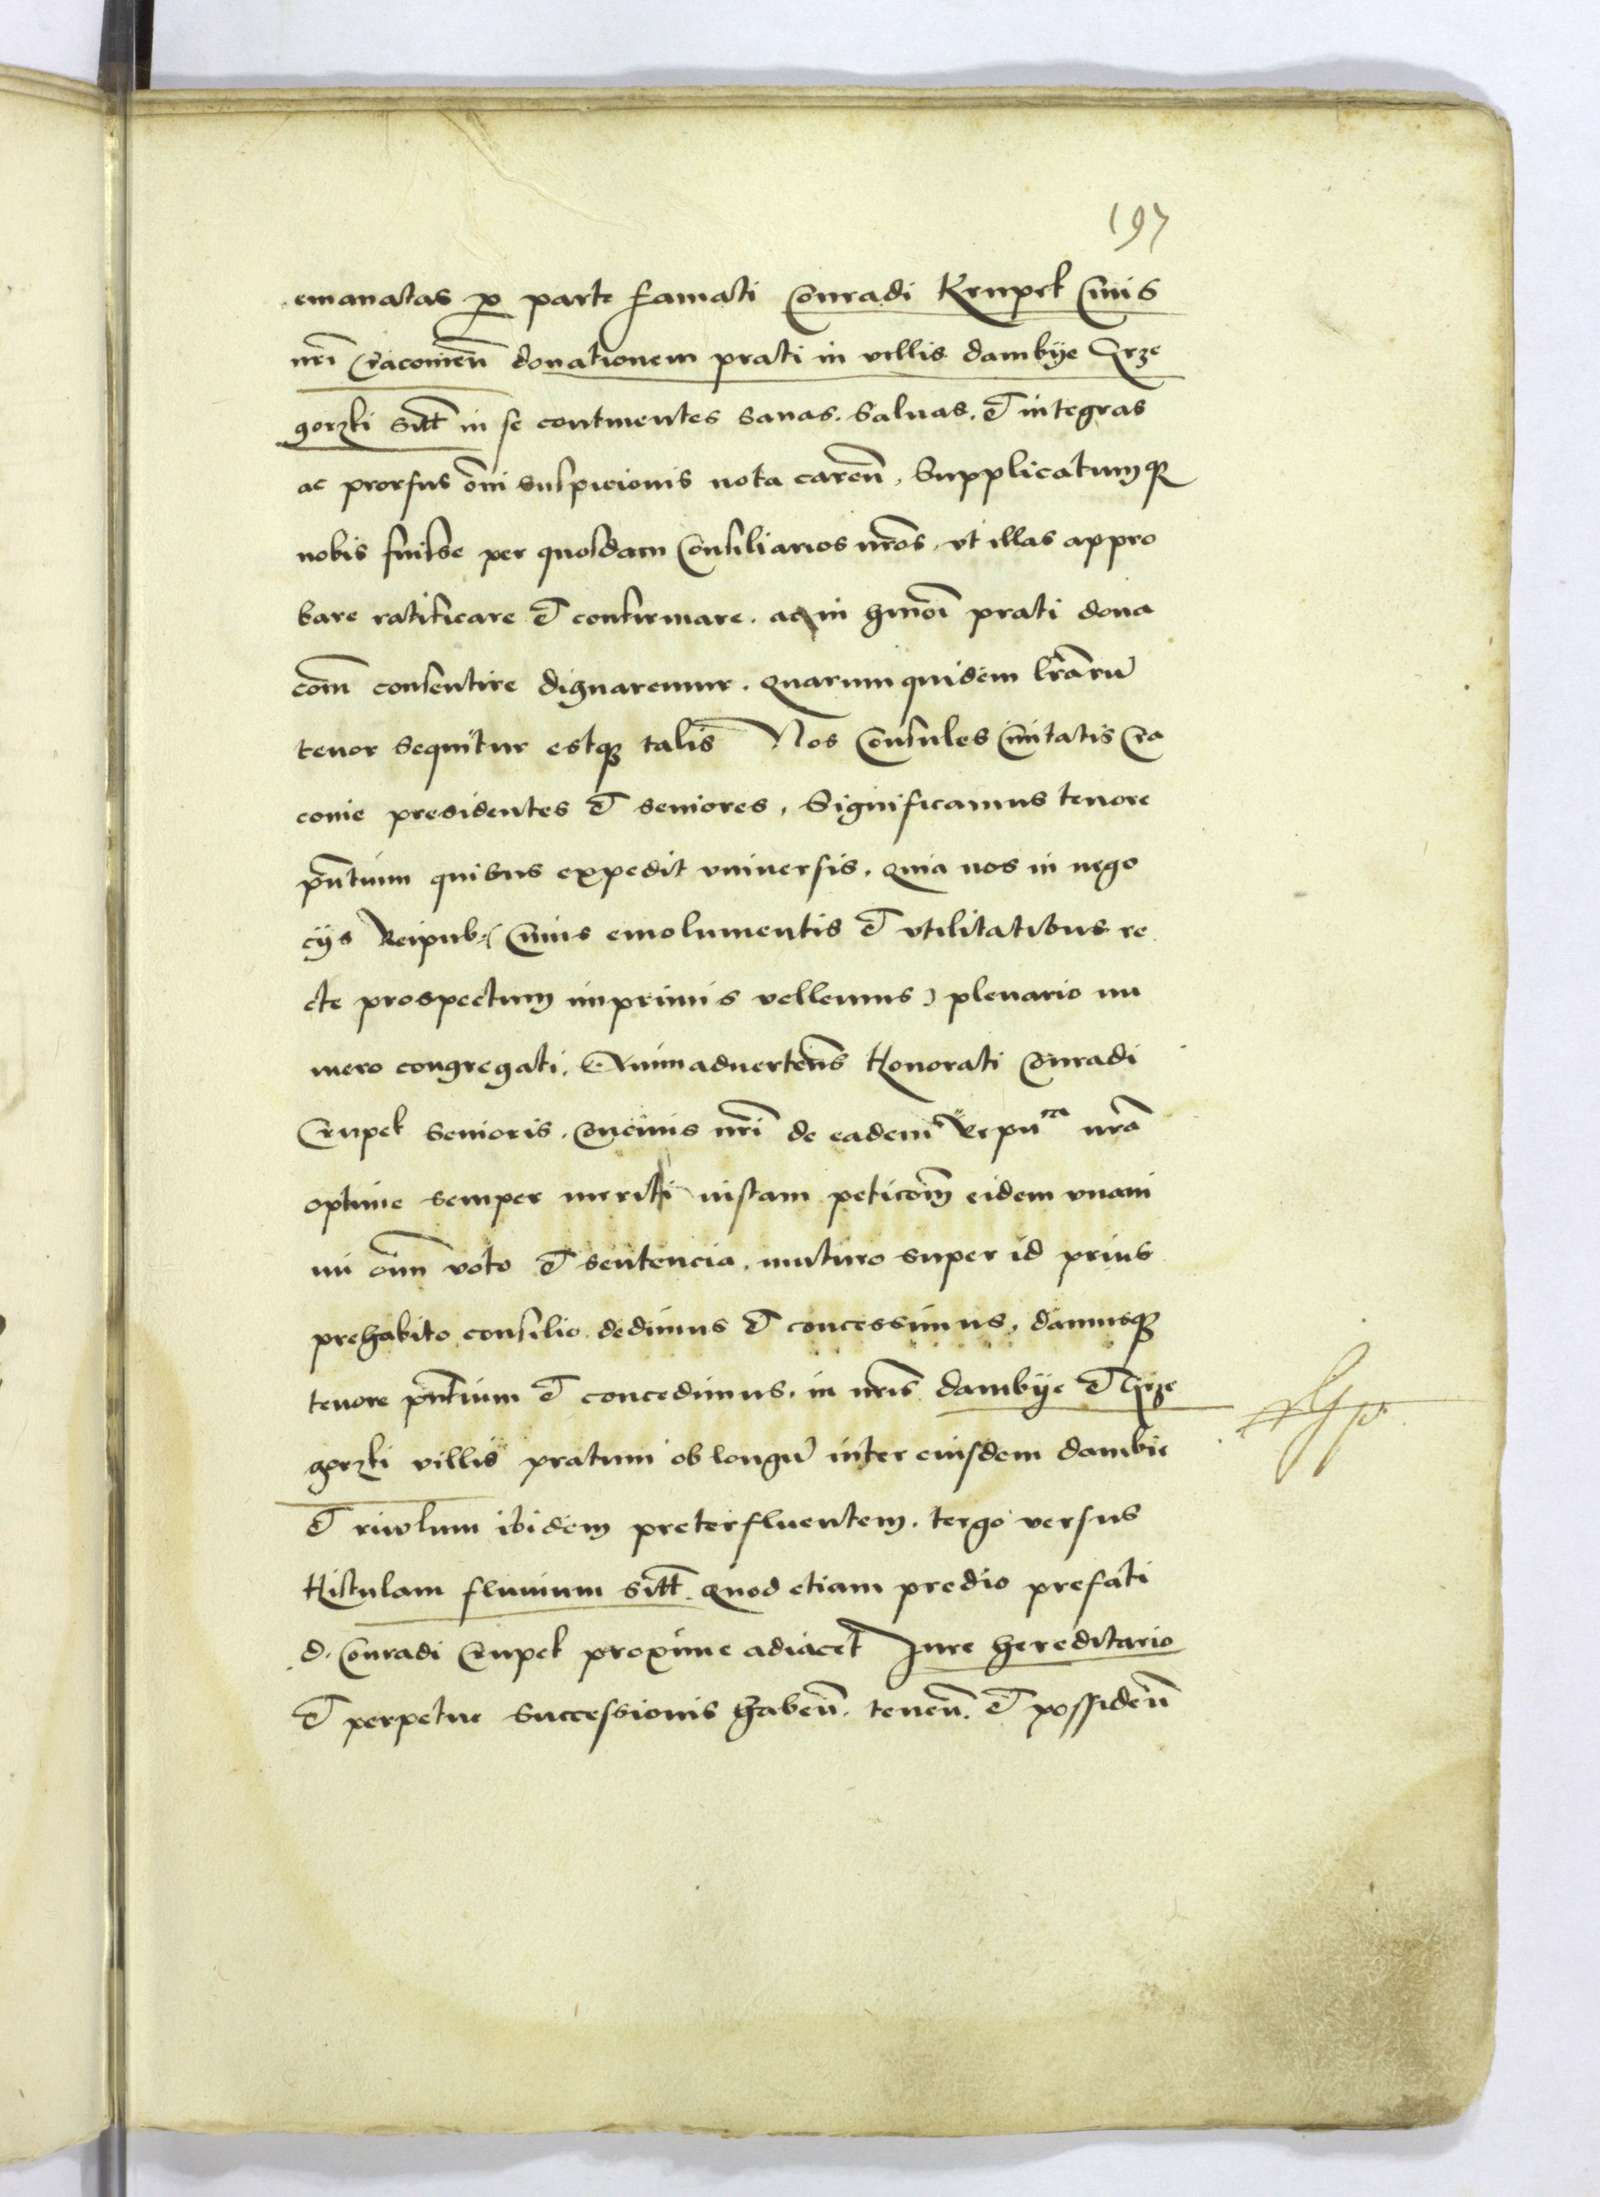 197
emanatas p parte famati Conradi Krupek Ciuis
nri Cracouien donationem prati in villis dambye Grze
gorzki sitt in se continentes sanas. saluas. et integras
ac prorsus omi suspicionis nota caren, Supplicatumq
nobis fuisse per quosdam Consiliarios nros, vt illas appro
bare ratificare et confirmare. ac in hmoi prati dona
com consentire dignaremur. quarum quidem lraru
tenor sequitur estq talis Nos Consules Ciuitatis Cra
couie presidentes et seniores, Significamus tenore
pntium quibus expedit vniuersis. quia nos in nego
cijs Reipub: (cuius emolumentis et vtilitatibus re
cte prospectum imprimis vellemus) plenario nu
mero congregati. Animaduertens Honorati Conradi
Crupek senioris. Conciuis nri de eadem Repu ca nra
optime semper meriti iustam peticiom eidem vnani
mi oim voto et sentencia, maturo super id prius
prehabito consilio dedimus et concessimus, damusq
tenore pntium et concedimus. in nris dambye et Grze
gorzki villis pratum oblongu inter eiusdem dambie
et riuolum ibidem preterfluentem. tergo versus
Histulam fluuium sitt. quod etiam predio prefati
d. Conradi Crupek proxime adiacet Jure hereditario
et perpetue successionis haben. tenen. et possiden